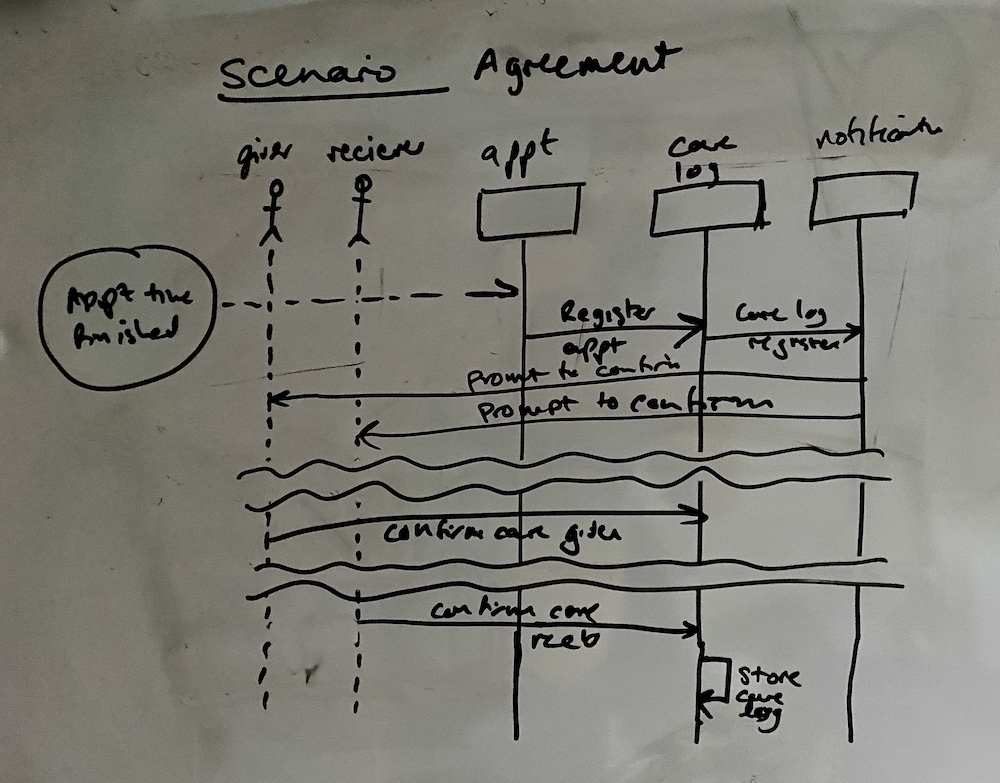 Scenario Agreement
giver reciever appt care log notification
Appt time
finished
Register
appt
care log
register
prompt to confirm
prompt to confirm
confirm care given
confirm care
store
care
log